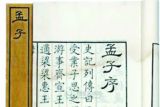 孟子
孟子序
史記列傳曰
受業子思之
游事齊宣王
道梁梁惠王